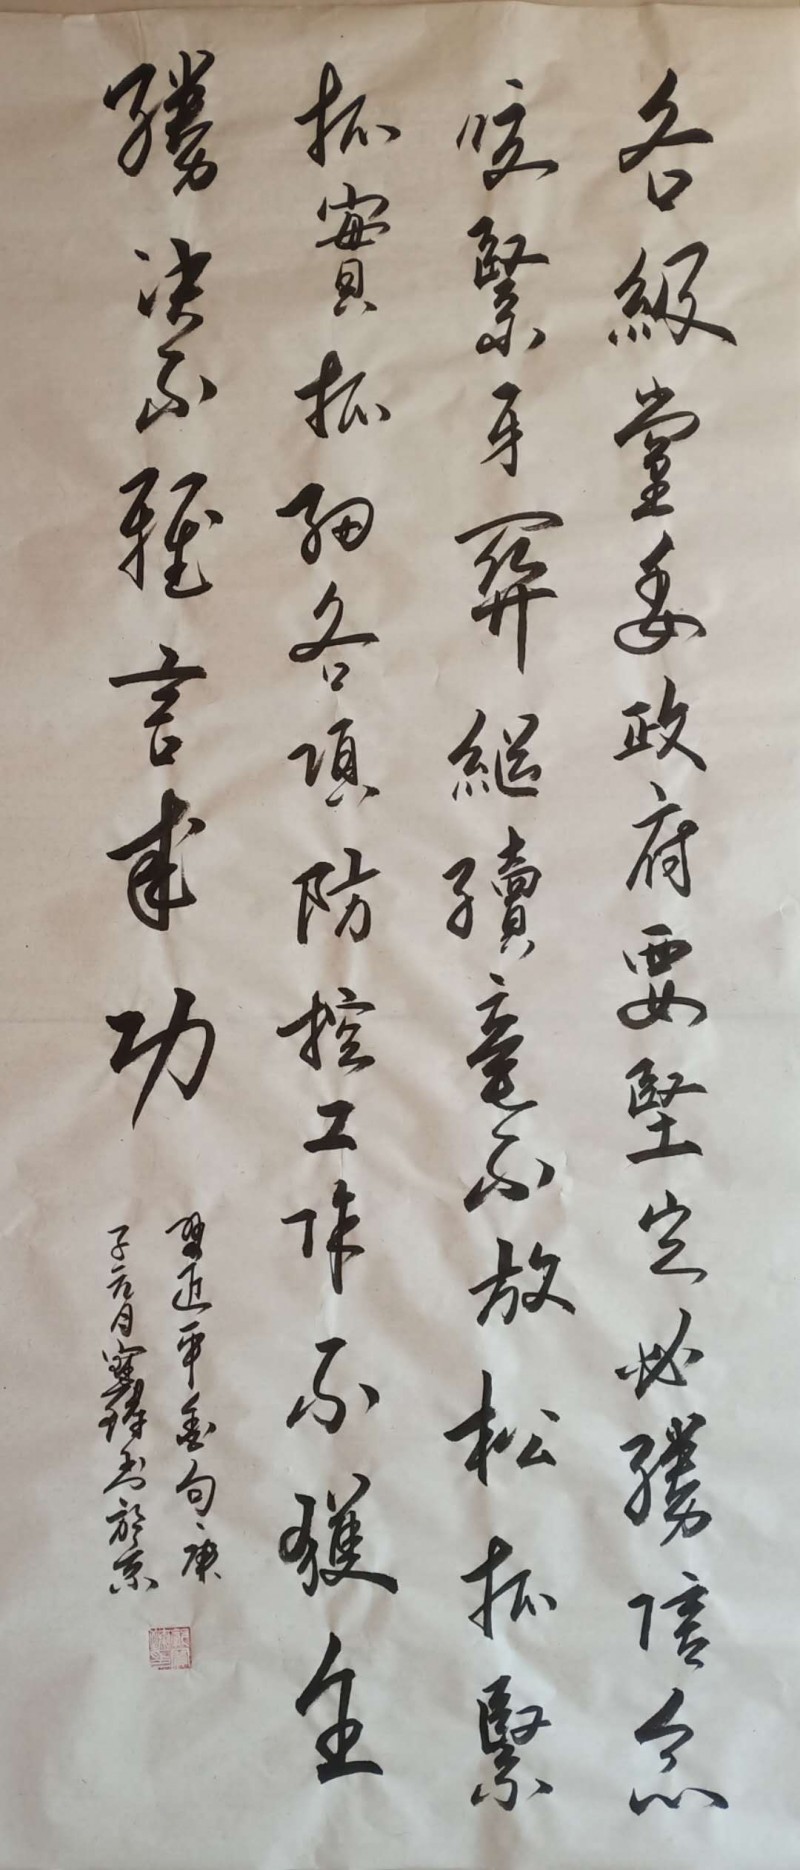 各級黨委政府要堅定必勝信念
咬緊牙關繼續毫不放松抓緊
抓實抓細各項防控工作不獲全
勝決不輕言成功
習近平金句庚
子六月寒鋒書於京